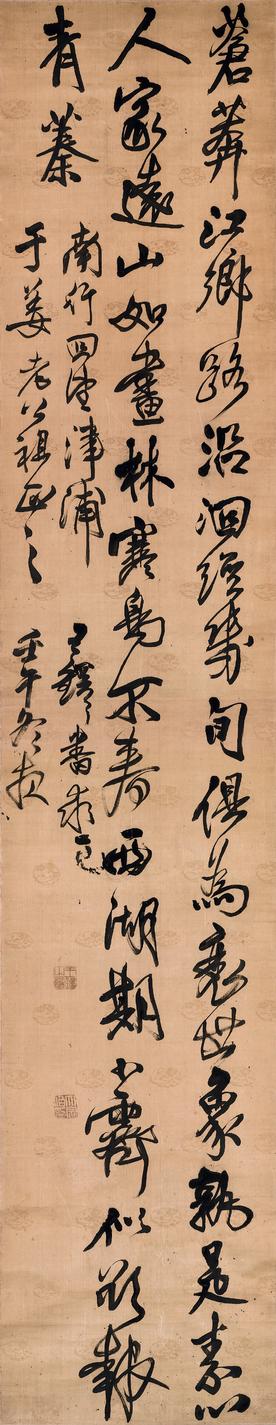 蒼莽江鄉路沿洄經幾旬俱為亂世象孰是素心
人家遠山如畫林寒鳥不春西湖期小霽似欲報
青蓁
南行津浦
于姜老公祖正之
王鐸書求
壬午冬夜